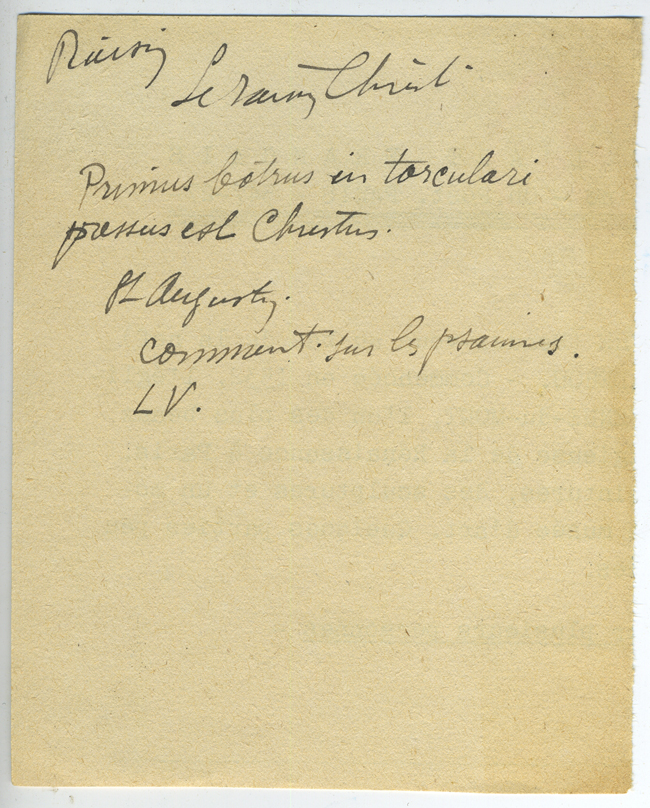 Raisin
Le raisin Christ
Primus botrus in torculari
passus est Christus.
St Augustin.
comment. sur les psaumes.
LV.